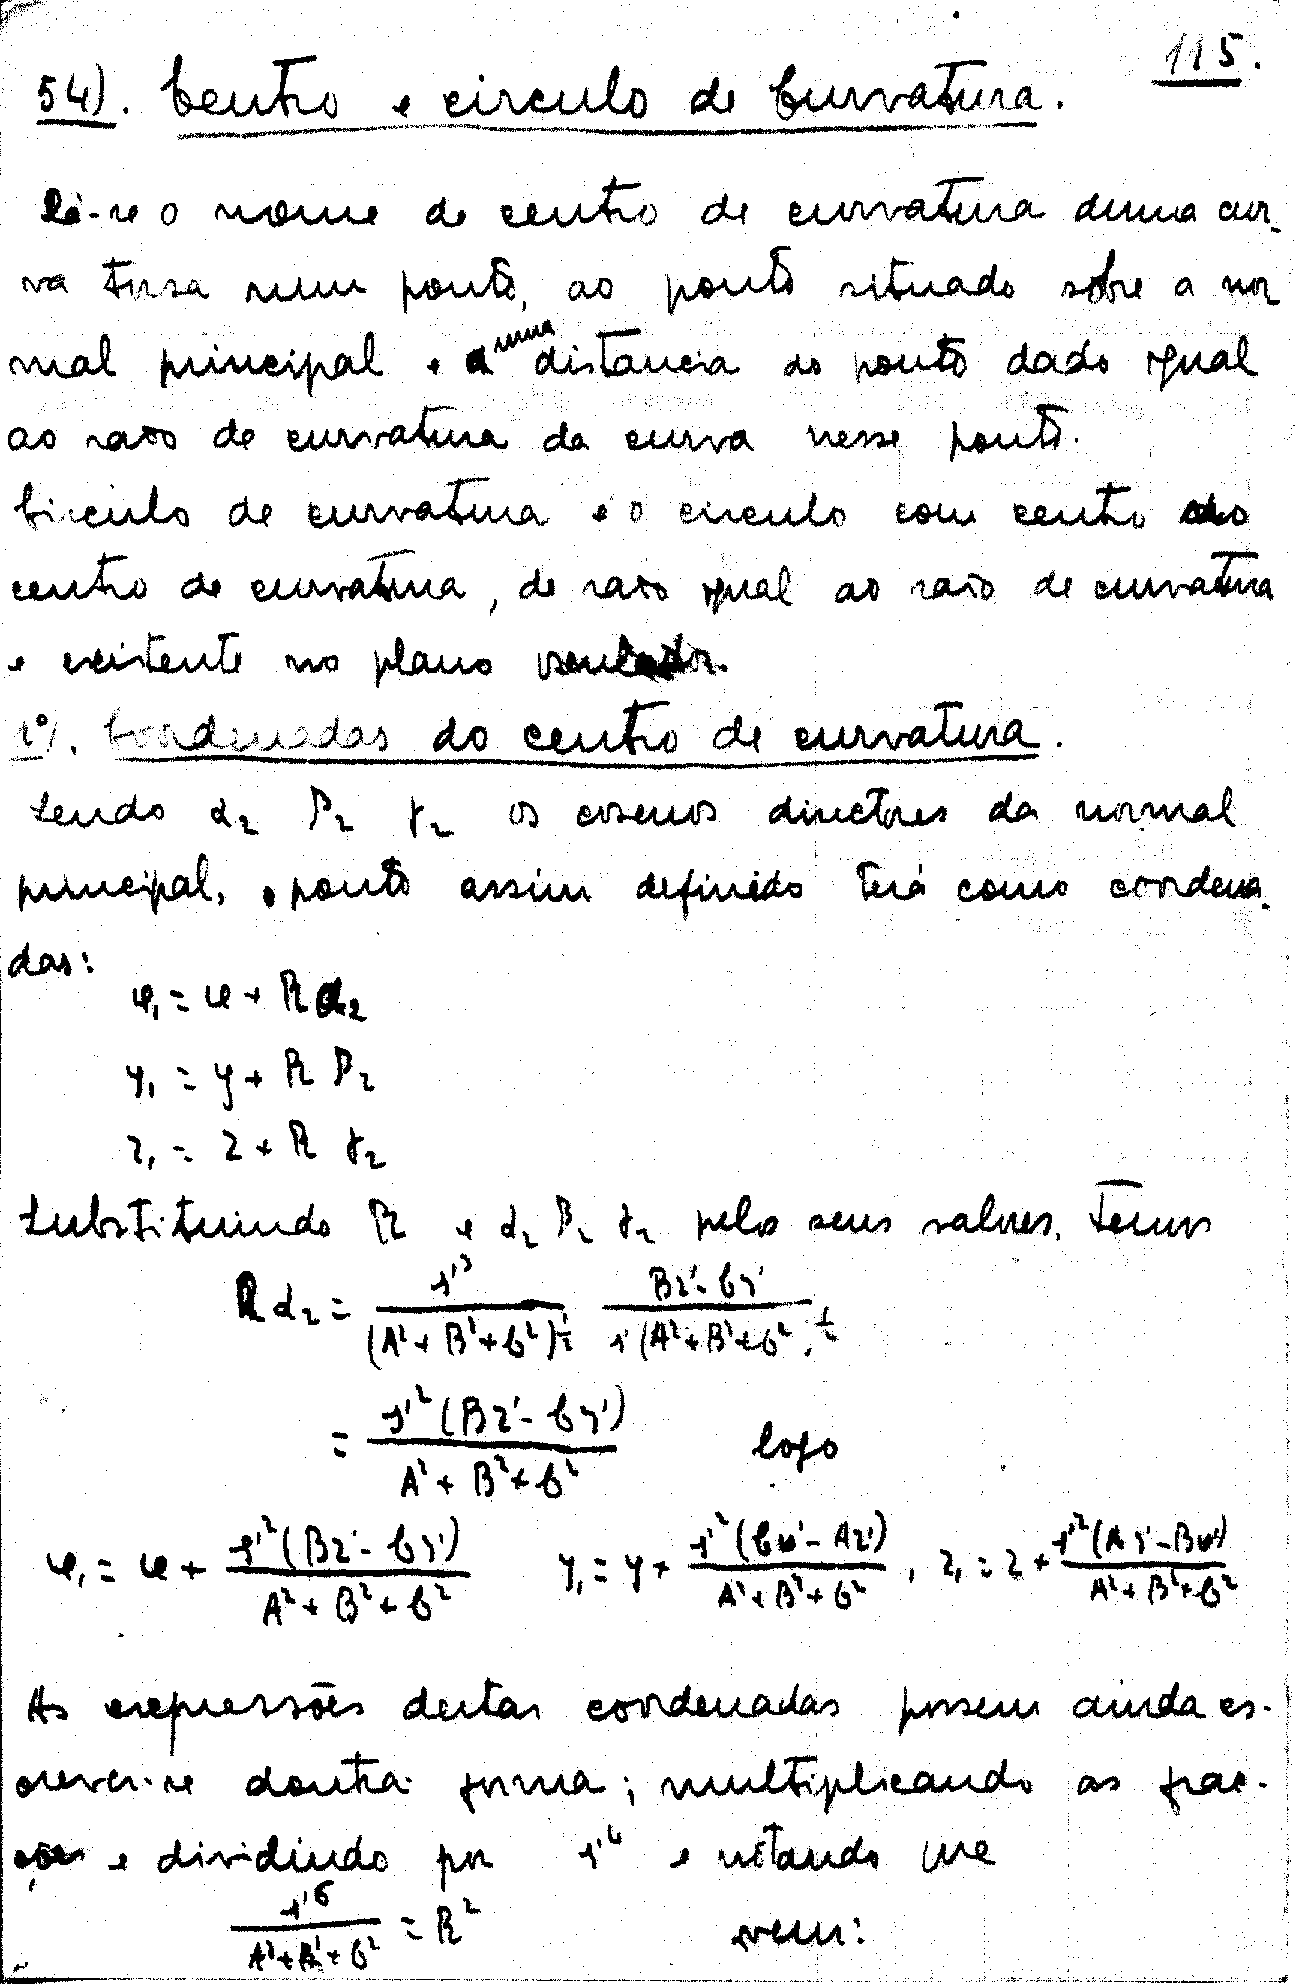 115.
54). Centro e circulo de Curvatura.
Dá-se o nome de centro de curvatura duma cur-
va torsa num ponto, ao ponto situado sobre a nor
mal principal e a uma distancia do ponto dado igual
ao raio de curvatura da curva nesse ponto.
Circulo de curvatura é o circulo com centro no
centro de curvatura, de raio igual ao raio de curvatura
e existente no plano osculador.
1º). Coordenadas do centro de curvatura.
Sendo α₂ β₂ γ₂ os cosenos directores da normal
principal, o ponto assim definido terá como coordena-
das:
x₁ = x + R α₂
y₁ = y + R β₂
z₁ = z + R γ₂
Substituindo R e α₂ β₂ γ₂ pelos seus valores, temos
R α₂ = s'³ / (A² + B² + C²)^½ · (Bz' - Cy') / s'(A² + B² + C²)^½
= s'² (Bz' - Cy') / (A² + B² + C²) logo
x₁ = x + s'² (Bz' - Cy') / (A² + B² + C²) y₁ = y + s'² (Cx' - Az') / (A² + B² + C²) , z₁ = z + s'² (Ay' - Bx') / (A² + B² + C²)
As expressões destas coordenadas possem ainda es-
crever-se doutra forma; multiplicando as frac-
ções e dividindo por s'⁴ e notando que
s'⁶ / (A² + B² + C²) = R² vem: